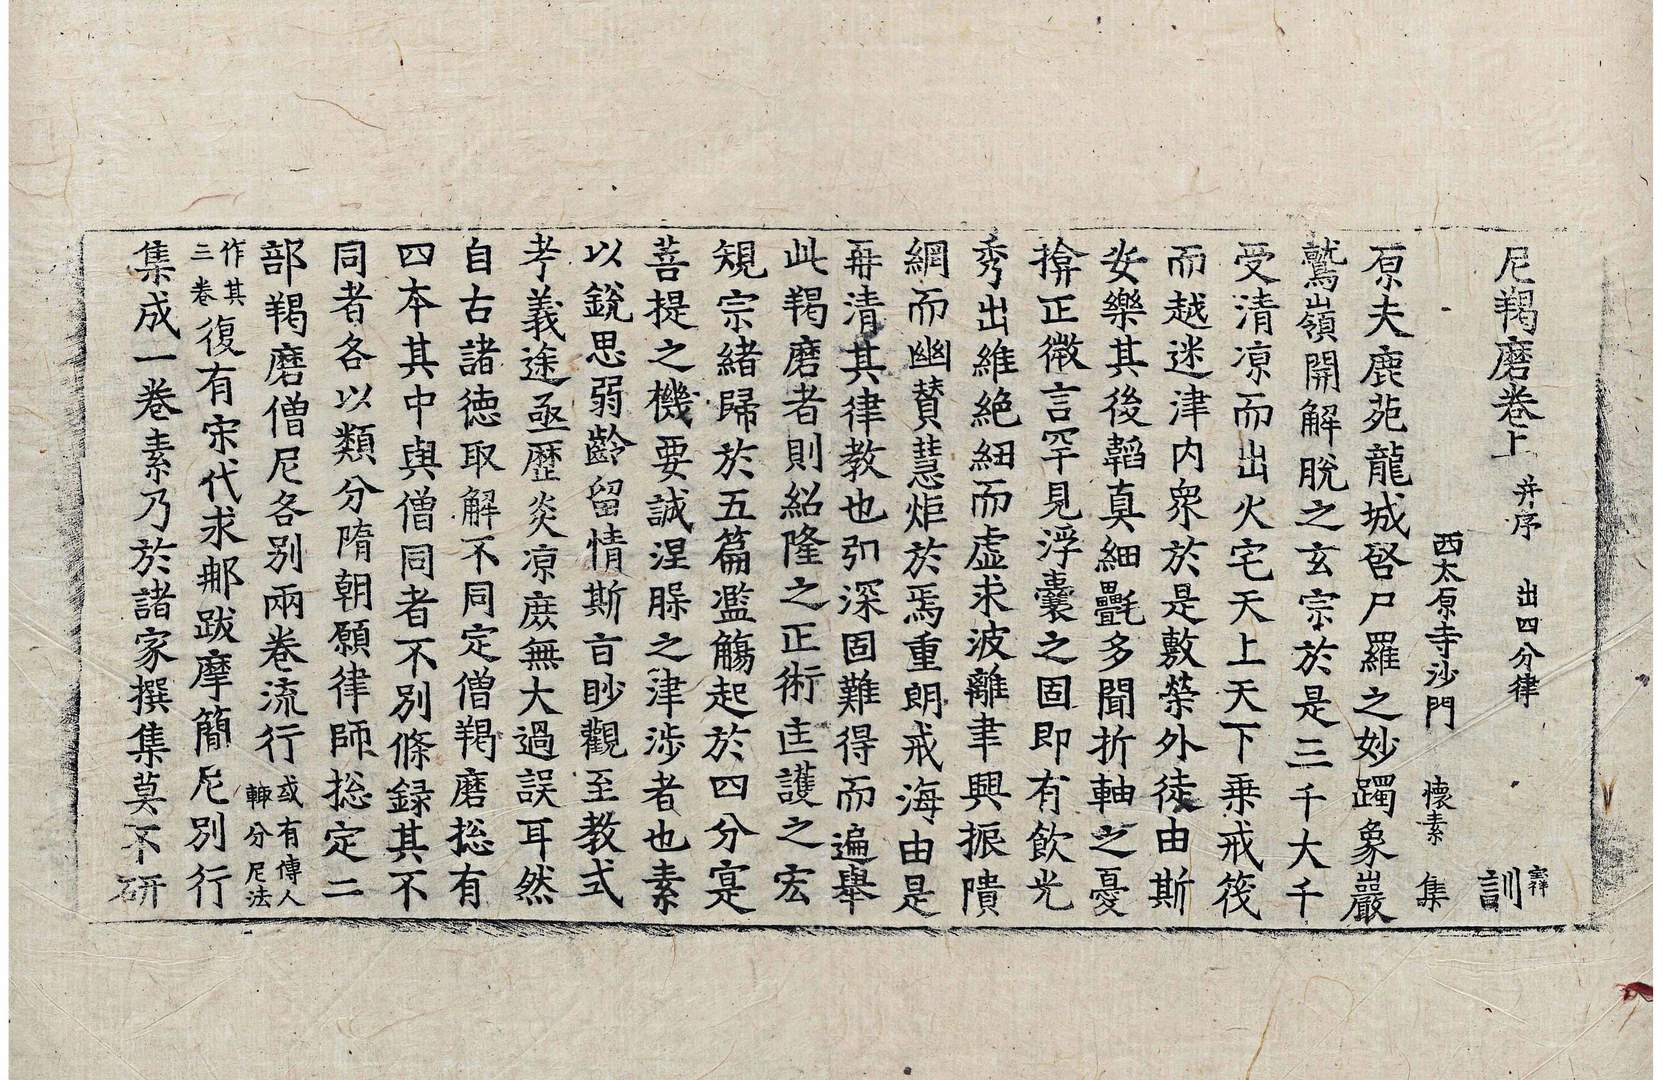 尼羯磨卷上 并序 出四分律 訓
西太原寺沙門 懷素 集
原夫鹿苑龍城啓尸羅之妙躅象巖
鷲嶺開解脫之玄宗於是三千大千
受清凉而出火宅天上天下乗戒筏
而越迷津内衆於是敷榮外徒由斯
安樂其後韜真細㲲多聞折軸之憂
揜正微言罕見浮囊之固即有飲光
秀出維絶細而虛求波離聿興振隤
綱而幽賛慧炬於焉重朗戒海由是
再清其律教也弘深固難得而遍舉
此羯磨者則紹隆之正術𨒪護之宏
規宗緒歸於五篇濫觴起於四分寔
菩提之機要誠涅槃之津涉者也素
以銳思弱齡留情斯旨眇觀至教式
考義途亟歷炎凉庶無大過誤耳然
自古諸德取解不同定僧羯磨揔有
四本其中與僧同者不別條録其不
同者各以類分隋朝願律師揔定二
部羯磨僧尼各別兩卷流行 或有傳人輙分尼法
作其三卷 復有宋代求那跋摩簡尼別行
集成一卷素乃於諸家撰集莫不研